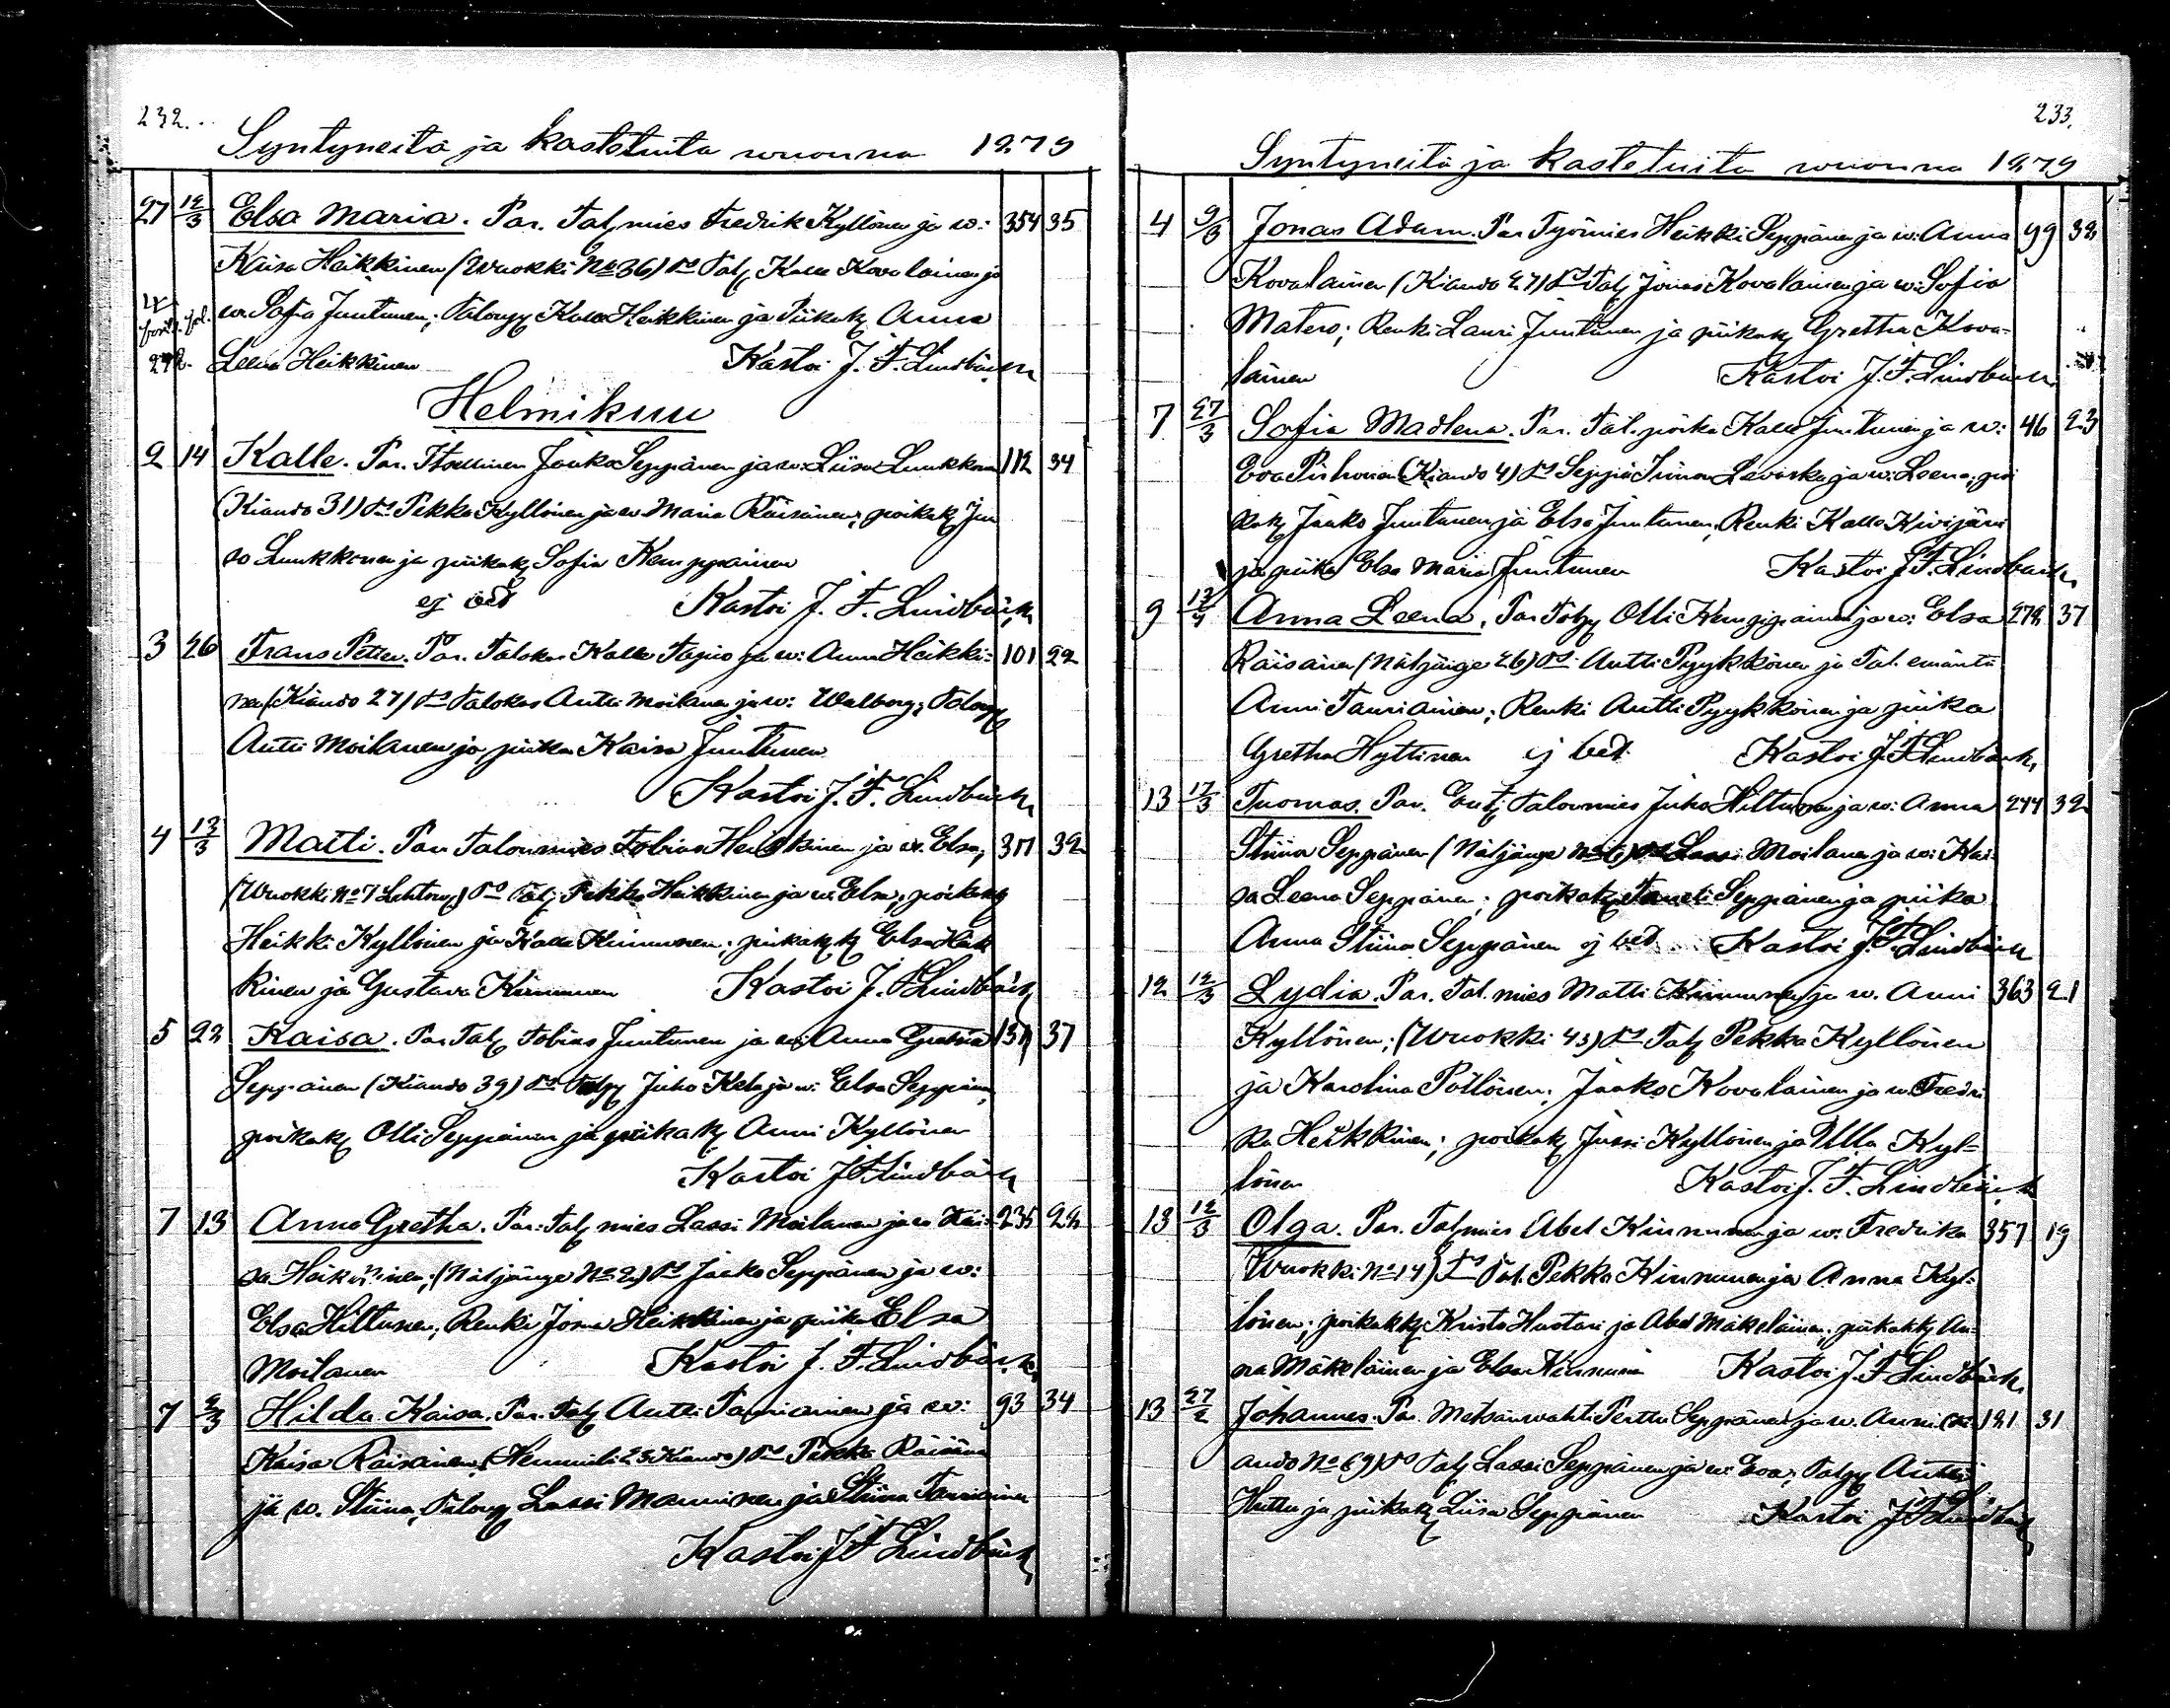 232.
Syntyneitä ja kastetuita wuonna 1879
27 12/3 Elsa Maria. Par. Tal. mies Fredrik Kyllönen ja w: 354 35
Kaisa Heikkinen (Wuokki No 36) Tal. Kalle Kovalainen ja
w. Sofia Juntunen; Talonp Kalle Heikkinen ja Piikak Anna
272. Leena Heikkinen Kastoi J. F. Lindbäck
Helmikuu
2 14 Kalle. Par. Itsellinen Jaako Seppänen ja w: Liisa Luukkonen 112 34
(Kiando 31) Pekka Kyllönen ja w. Maria Räisänen; poikak Juu
so Luukkonen ja piikak Sofia Kemppainen
ej bet Kastoi J. F. Lindbäck
3 26 Frans Petter. Par. Talokas Kalle Tapio ja w: Anna Heikki= 101 22
nen (Kiando 27) Talokas Antti Moilanen ja w: Walborg; Talonp
Antti Moilanen ja piika Kaisa Juntunen
Kastoi J. F. Lindbäck
4 13/3 Matti. Par. Talonmies Tobias Heikkinen ja w. Elsa, 32
(Wuokki No 7 ) Tal. Pekka Heikkinen ja w. Elsa; poikak
Heikki Kyllönen ja Kalle Kinnunen; piikakk Elsa Heik
kinen ja Gustava Kinnunen Kastoi J. F. Lindbäck
5 22 Kaisa. Par. Tal. Tobias Juntunen ja w: Anna Gretha 37
Seppänen (Kiando 39) Juho Kela ja w: Elsa Seppänen,
poikak Olli Seppänen ja piikak Anni Kyllönen
Kastoi J. F. Lindbäck
7 13 Anna Gretha. Par. Tal. mies Lassi Moilanen ja w. Kai= 235 22
sa Heikkinen; (Näljänge No 2) Jaako Seppänen ja w:
Elsa Hiltunen; Renki Joma Heikkinen ja piika Elsa
Moilanen Kastoi J. F. Lindbäck
7 Hilda Kaisa. Par. Tal. Antti Tauriainen ja w: 93 34
Kaisa Räisänen, ( Kiando) Pekka Räisänen
ja w. Stiina; Talonp Lassi Manninen ja Stiina Tauriainen
Kastoi J. F. Lindbäck
233.
Syntyneitä ja kastetuita wuonna 1879
4 9/3 Jonas Adam. Par Työmies Heikki Seppänen ja w: Anna 99 32
Kovalainen (Kiando 27) Tal. Jonas Kovalainen ja w: Sofia
Matero; Renki Lauri Juntunen ja piikak Gretha Kova=
lainen Kastoi J. F. Lindbäck
7 27/3 Sofia Madlena. Par. Tal. poika Kalle Juntunen ja w: 46 23
Eva Pirhonen (Kiando 4) Seppä Lavaska ja w: Leena; poi
kak Jaako Juntunen ja Elsa Juntunen, Renki Kalle Kivijärvi
ja piika Elsa Maria Juntunen Kastoi J. F. Lindbäck
9 13/4 Anna Leena. Par Talp Olli Kemppainen ja w: Elsa 272 37
Räisänen (Näljänge 26) Antti Pyykkönen ja Tal. emäntä
Anni Tauriainen; Renki Antti Pyykkönen ja piika
Gretha Hyttinen ej bet. Kastoi J. F. Lindbäck
13 17/3 Tuomas. Par. Ent. Talonmies Juho Hiltunen ja w: Anna 244 32
Stiina Seppänen (Näljänge ) Lassi Moilanen ja w: Kai=
sa Leena Seppänen; poikak Taneli Seppänen ja piika
Anna Stiina Seppänen ej bet. Kastoi J. F. Lindbäck
12 12/3 Lydia. Par. Tal. mies Matti Kinnunen ja w. Anni 363 21
Kyllönen; (Wuokki 43) Tal. Pekka Kyllönen
ja Karolina Pöllönen; Jaako Kovalainen ja w. Fredri
ka Heikkinen; poikak Jussi Kyllönen ja Ulla Kyl=
lönen Kastoi J. F. Lindbäck
13 12/3 Olga. Par. Tal mies Abel Kinnunen ja w: Fredrika 357 19
(Wuokki No 14) Tal. Pekka Kinnunen ja Anna Kyl=
lönen; poikakk Kristo Hustari ja Abel Mäkeläinen; piikakk An=
na Mäkeläinen ja Elsa Kinnunen Kastoi J. F. Lindbäck
13 27/2 Johannes. Par. Metsänwahti Perttu Seppänen ja w. Anni (Ki 121 31
ando No 69) Tal. Lassi Seppänen ja w: Eva; Talp Antti
Huttu ja piikak Liisa Seppänen Kastoi J. F. Lindbäck